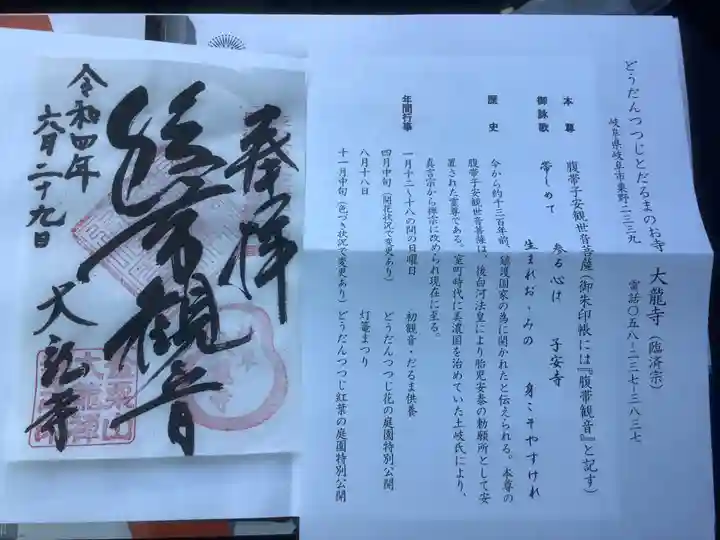 どうだんつつじとだるまのお寺 大龍寺(臨済宗)
岐阜県岐阜市粟野二三三九 電話〇五八-二三七-三八三七
本尊 腹帯子安観世音菩薩(御朱印帳には『腹帯観音』と記す)
御詠歌 参る心は 子安寺
帯しめて 生まれお・みの 身こそやすけれ
歴史 今から約千三百年前、鎮護国家の為に開かれたと伝えられる。本尊の
腹帯子安観世音菩薩は、後白河法皇により胎児安泰の勅願所として安
置された霊尊である。室町時代に美濃国を治めていた土岐氏により、
真言宗から禅宗に改められ現在に至る。
年間行事 一月十二~十八の間の日曜日 初観音・だるま供養
四月中旬(開花状況で変更あり) どうだんつつじ花の庭園特別公開
八月十八日 灯篭まつり
十一月中旬(色づき状況で変更あり)どうだんつつじ紅葉の庭園特別公開
奉拝
腹帯観音
大龍寺
令和四年
六月二十九日